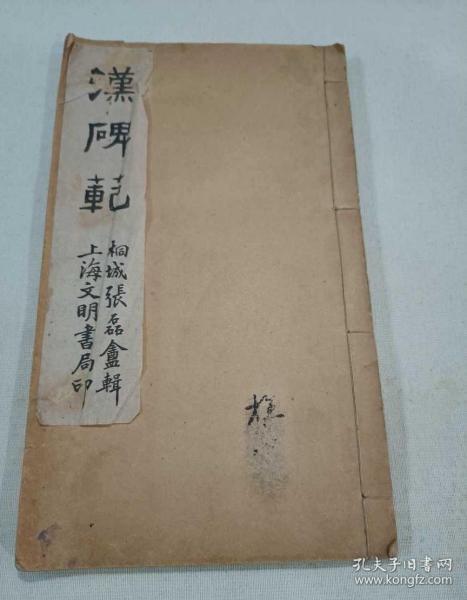 漢碑範
桐城張磊盦輯
上海文明書局印
孔夫子旧书网
www.kongfz.com